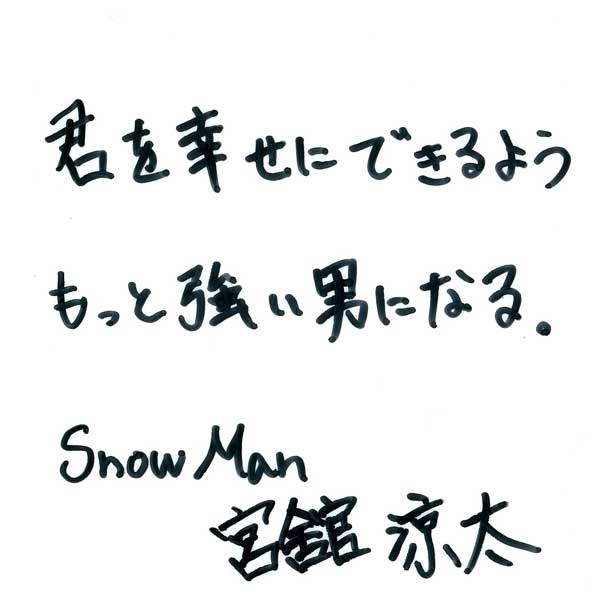 君を幸せにできるよう
もっと強い男になる。
Snow Man
宮舘 涼太